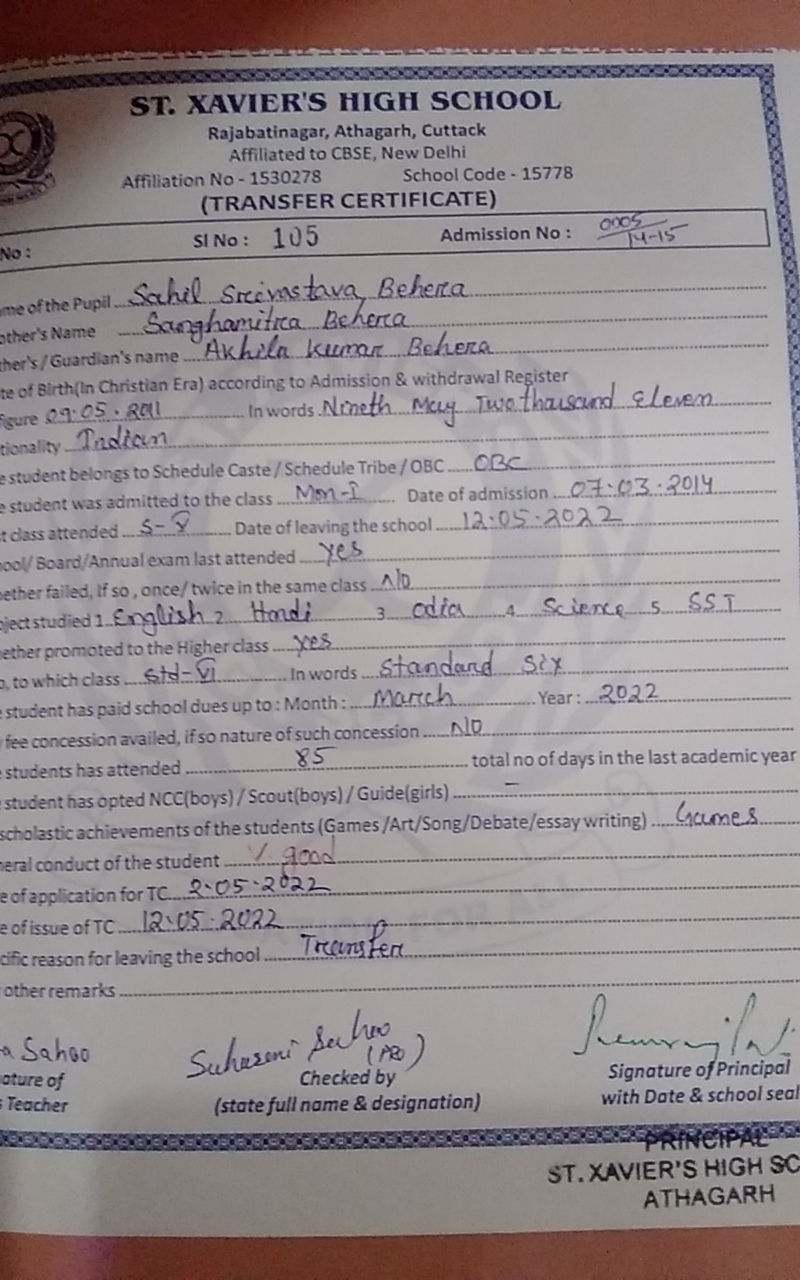 ST. XAVIER'S HIGH SCHOOL
Rajabatinagar, Athagarh, Cuttack
Affiliated to CBSE, New Delhi
Affiliation No - 1530278 School Code - 15778
(TRANSFER CERTIFICATE)
No : Sl No : 105 Admission No : 0005/14-15
me of the Pupil Sahil Srivastava Behera
other's Name Sanghamitra Behera
ther's / Guardian's name Akhila Kumar Behera
te of Birth(In Christian Era) according to Admission & withdrawal Register
figure 09.05.2011 In words Nineth May Two thousand Eleven
tionality Indian
e student belongs to Schedule Caste / Schedule Tribe / OBC OBC
e student was admitted to the class Mon-I Date of admission 07.03.2014
t class attended S-V Date of leaving the school 12.05.2022
ool/ Board/Annual exam last attended yes
ether failed, If so , once/ twice in the same class No
bject studied 1 English 2 Hindi 3 odia 4 Science 5 SST
ether promoted to the Higher class yes
o, to which class Std-VI In words Standard Six
e student has paid school dues up to : Month : March Year : 2022
fee concession availed, if so nature of such concession No
students has attended 85 total no of days in the last academic year
student has opted NCC(boys) / Scout(boys) / Guide(girls) –
scholastic achievements of the students (Games /Art/Song/Debate/essay writing) Games
neral conduct of the student V. good
e of application for TC 2.05.2022
e of issue of TC 12.05.2022
cific reason for leaving the school Transfer
other remarks
a Sahoo Suhasini Sahoo (PRO)
ature of Checked by Signature of Principal
Teacher (state full name & designation) with Date & school seal
PRINCIPAL
ST. XAVIER'S HIGH SC
ATHAGARH